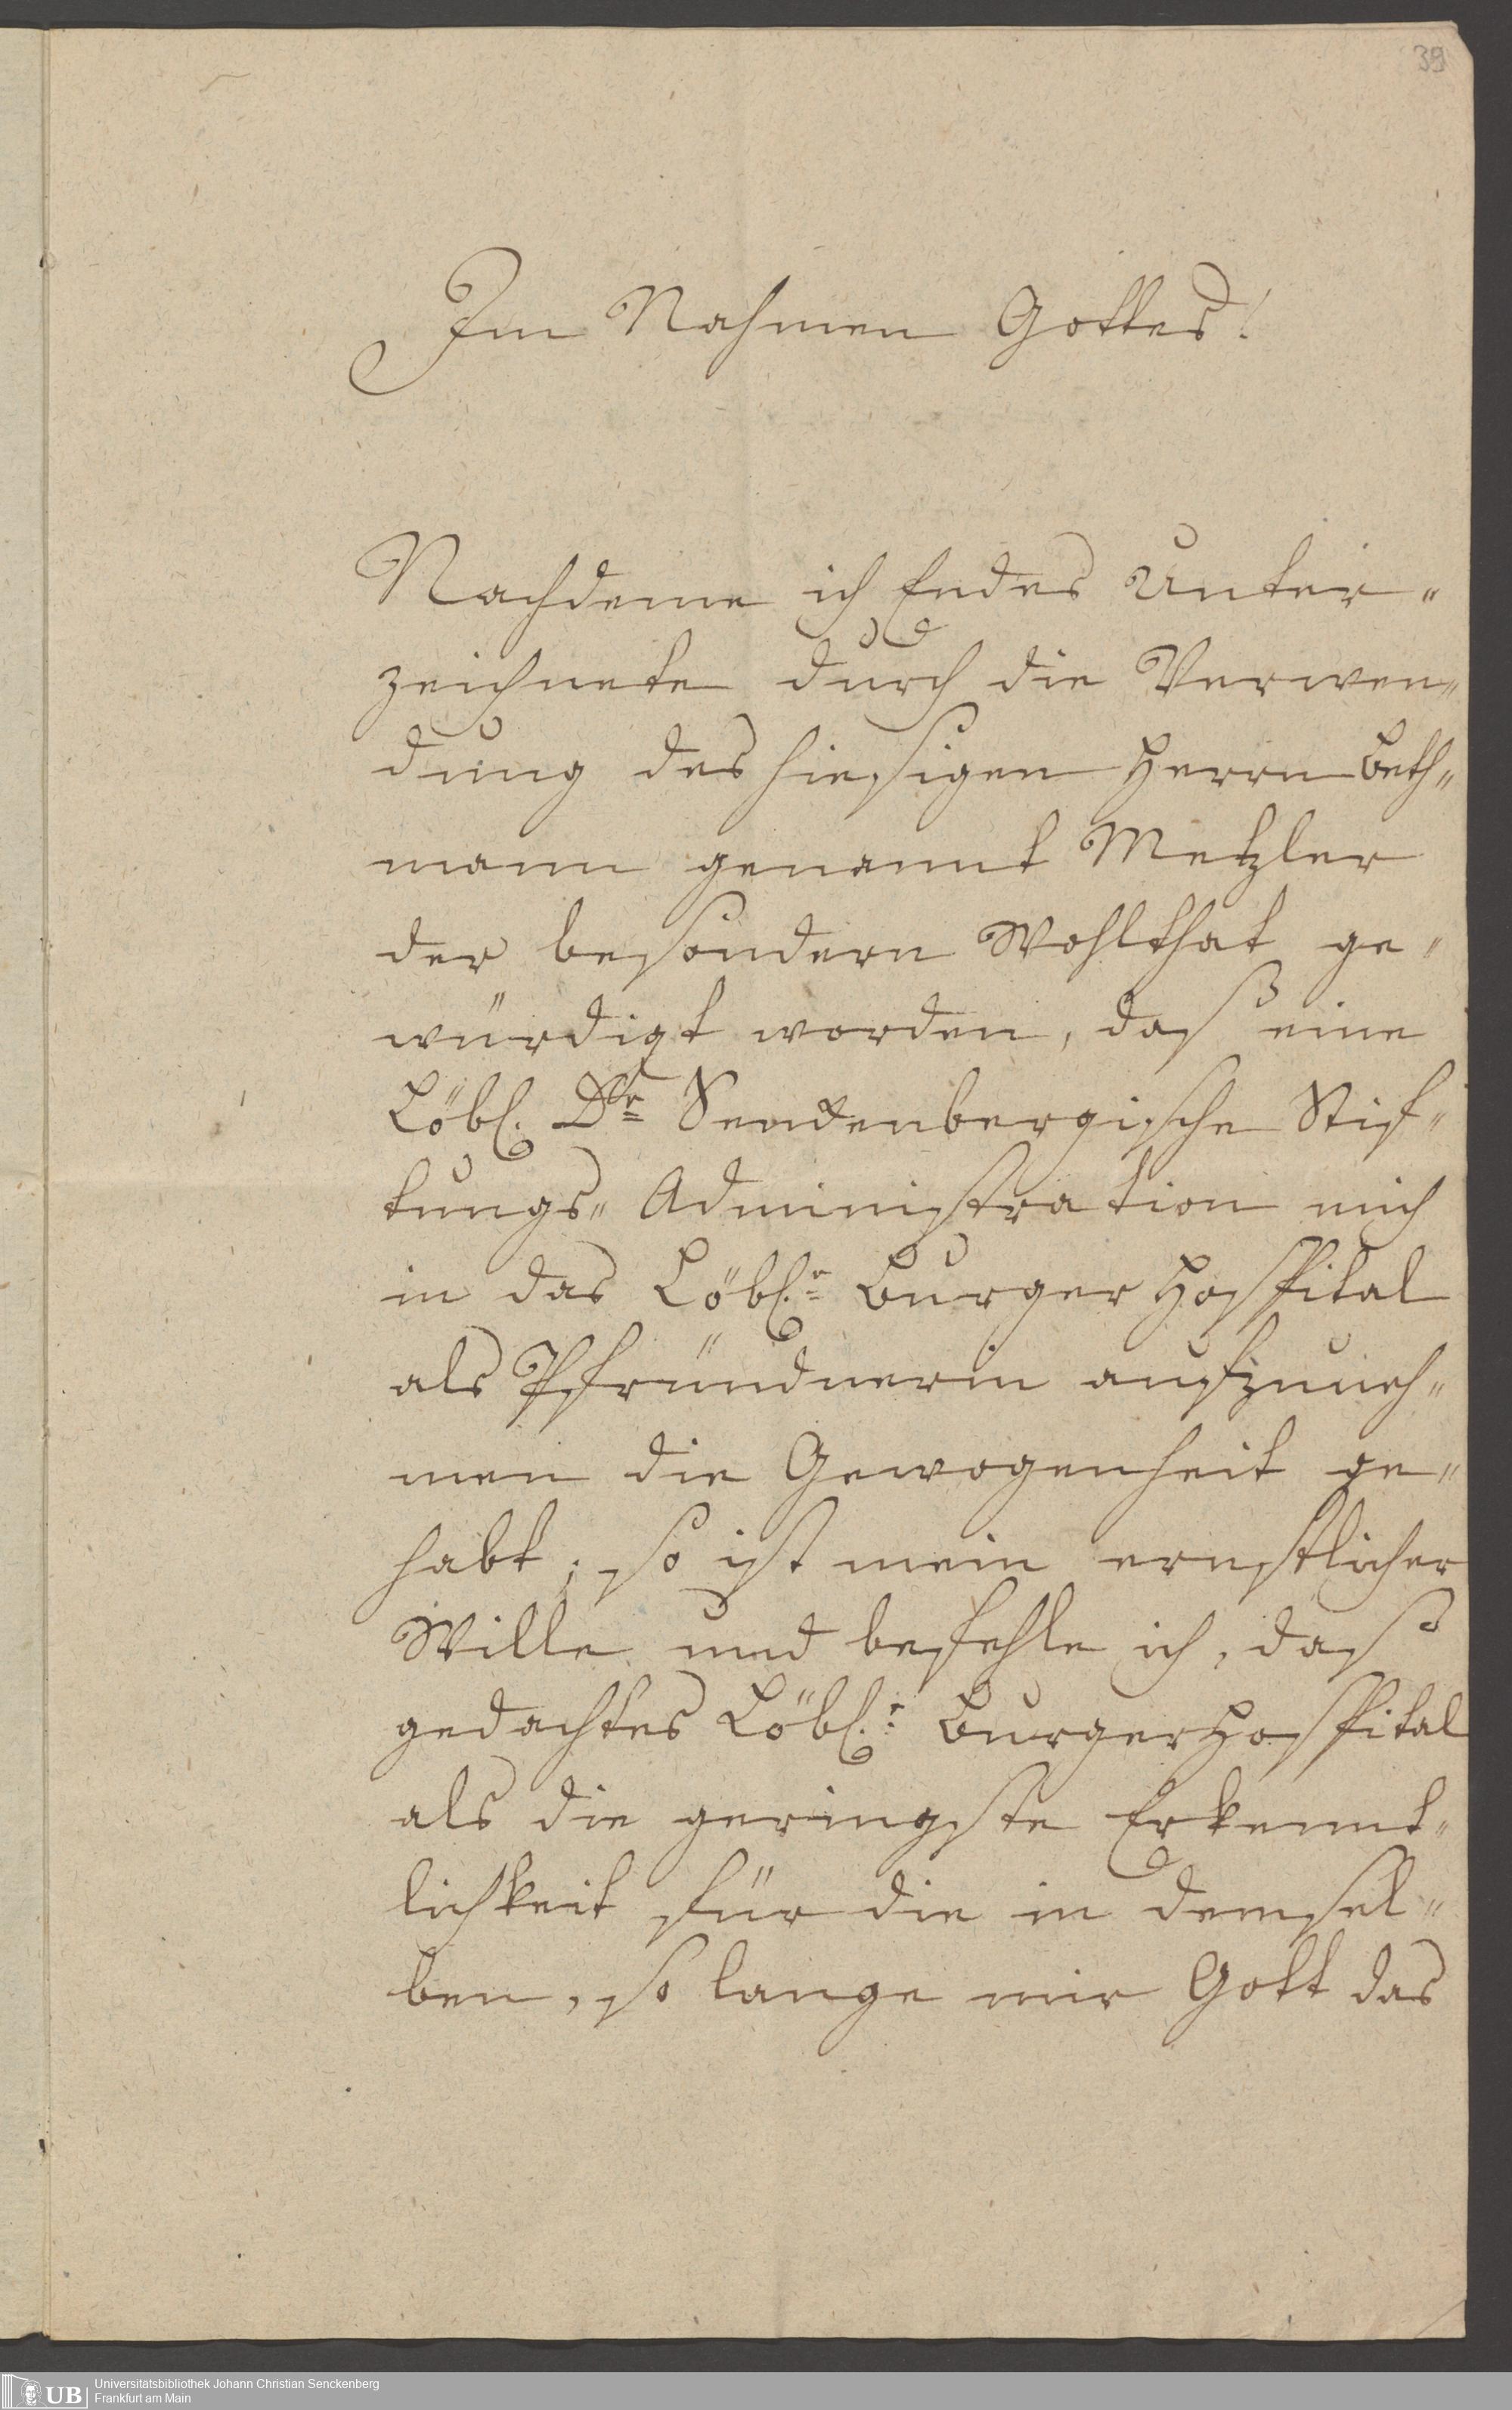 39
Im Nahmen Gottes!
Nachdeme ich Endes Unter„
zeichnete durch die Verwen„
dung des hiesigen Herrn Beth„
mann genannt Metzler
der besondern Wohlthat ge„
würdigt worden, daß eine
Löbl. Dr Senckenbergische Stif„
tungs„ Administration mich
in das Löbl.e Burger Hospital
als Pfründnerin aufzuneh„
men die Gewogenheit ge„
habt; so ist mein ernstlicher
Wille und befehle ich, daß
gedachtes Löbl.e Burgerhospital
als die geringste Erkennt„
lichkeit für die in demsel„
ben, so lange mir Gott das
UB
Universitätsbibliothek Johann Christian Senckenberg
Frankfurt am Main